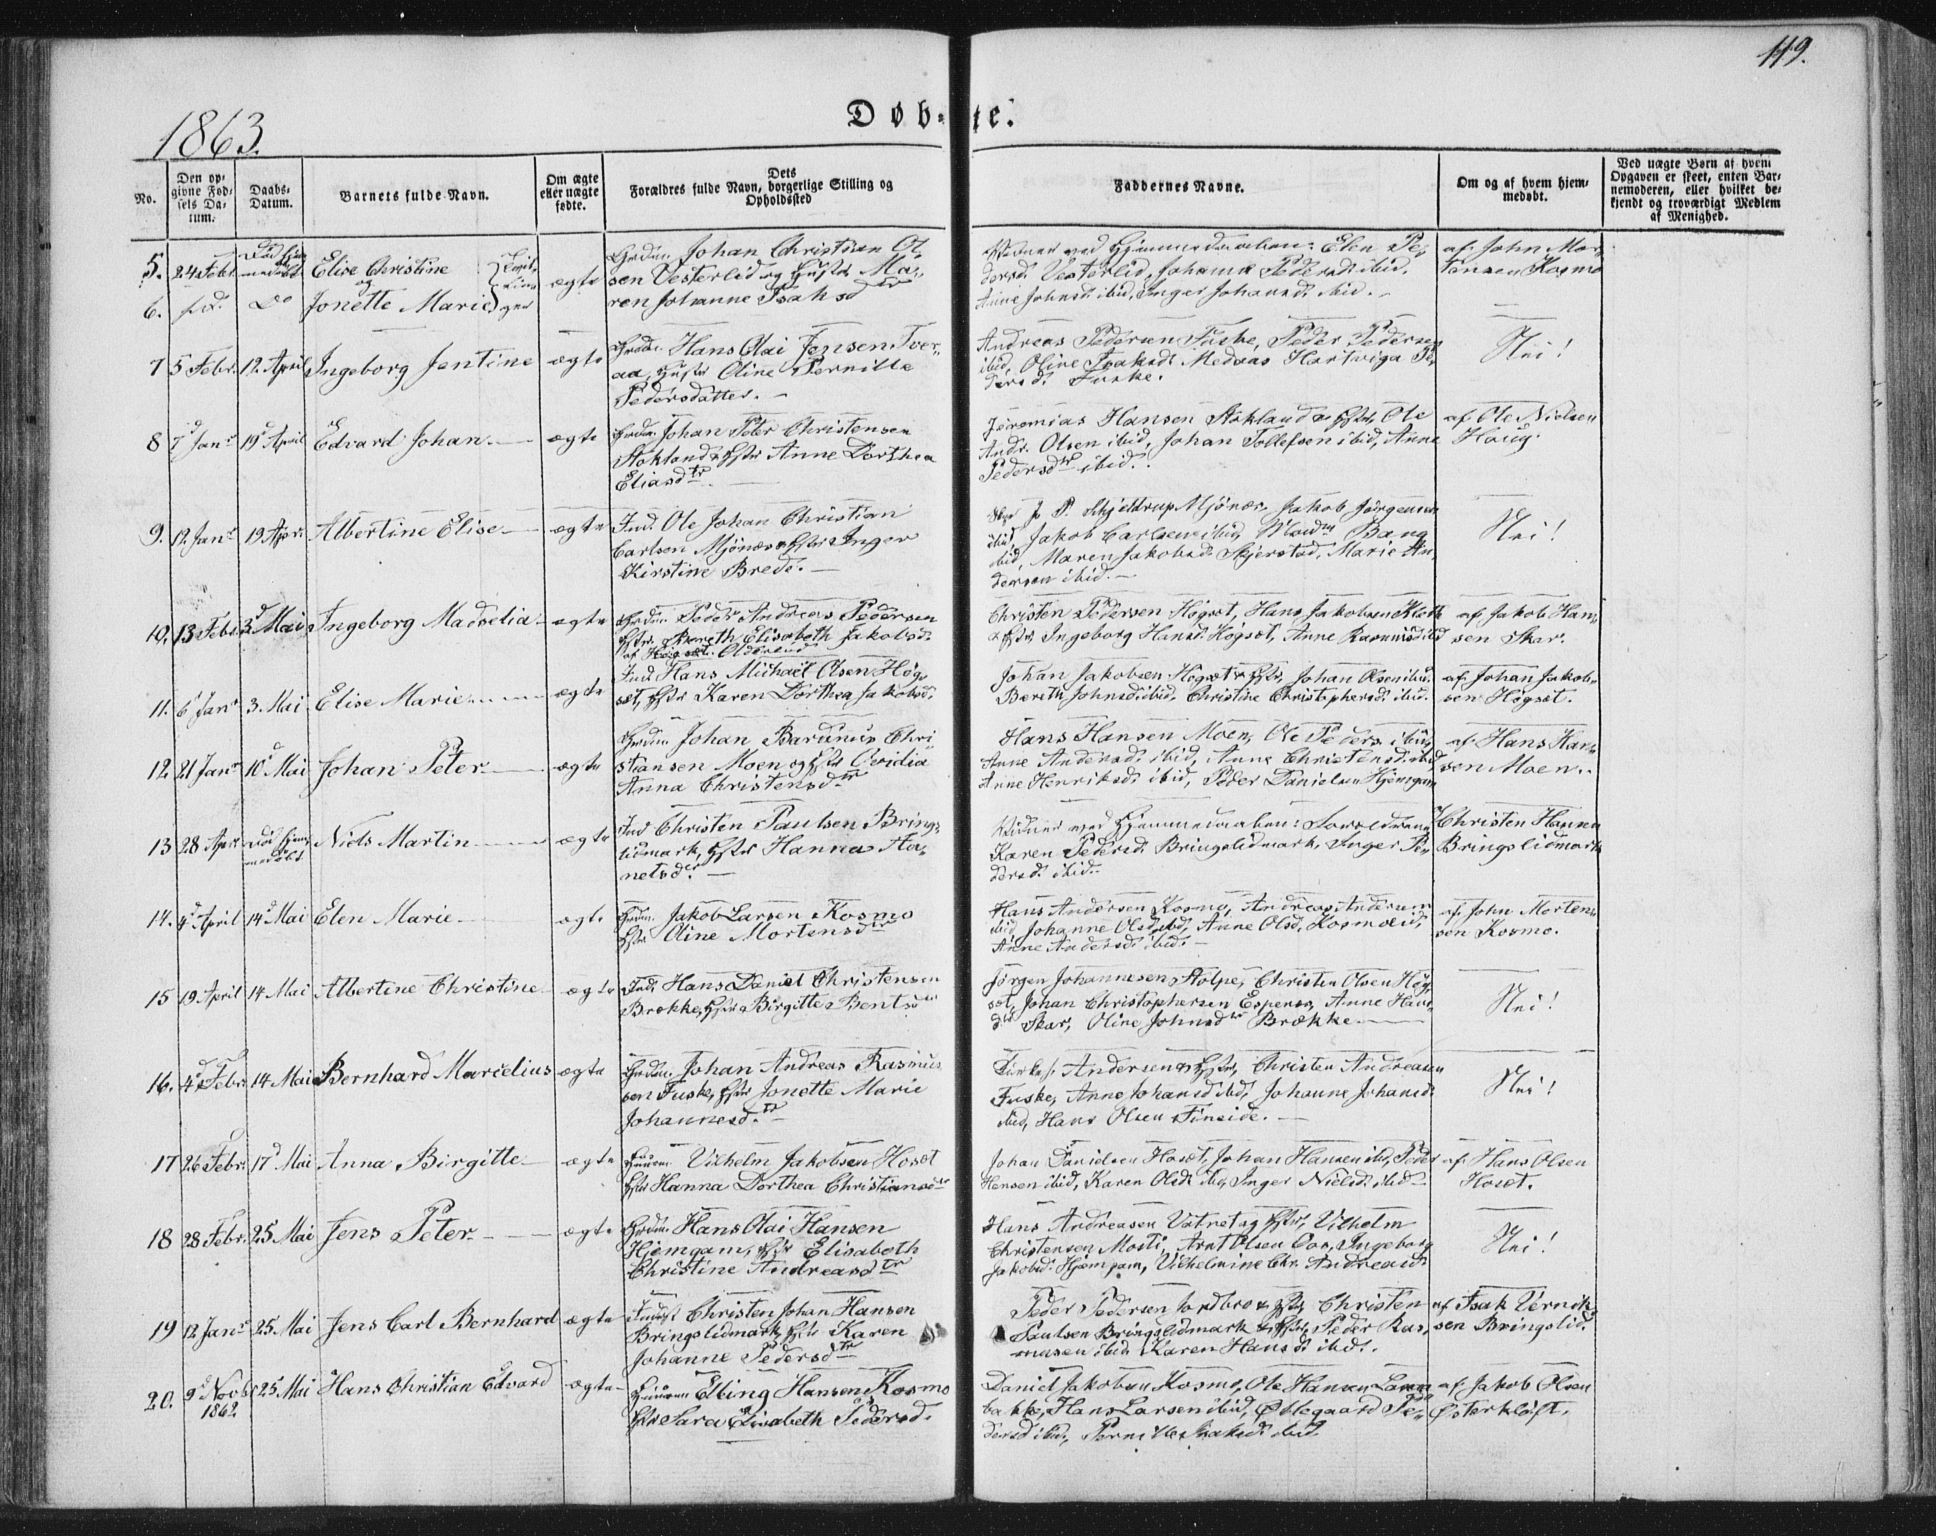 119.
1863.
Døbte.
No.
Den opgivne Fødsels Datum.
Daabs-Datum.
Barnets fulde Navn.
Om ægte eller uægte fødte.
Dets Forældres fulde Navn, borgerlige Stilling og Opholdssted
Faddernes Navne.
Om og af hvem hjemmedøbt.
Ved uægte Børn af hvem Opgaven er skeet, enten Barnemoderen, eller hvilket bekjendt og troværdigt Medlem af Menighed.
5. 24 Febr. Elise Christine
og
6. Do Jonette Marie
ægte
Johan Christian Ol-
sen Vesterlid og Hustr. Ma-
ren Johanne Isaksdtr
Vidner ved Hjemmedaaben: Elen Pe-
dersd. Vesterlid, Johanna Pedersd. ibid.
Anne Johnsd. ibid, Inger Johansd. ibid.
af John Mor-
tensen Kosmo
7 5 Febr. 12. April Ingeborg Jentine ægte
Hans Olai Jensen Tver-
aa, Hustr Oline Pernille
Pedersdatter.
Andreas Pedersen Fuske, Peder Pedersen
ibid, Oline Isaksd. Medaas Hartviga Pe-
dersd. Fuske.
Nei!
8 7d Janr 19d April Edvard Johan ægte
Johan Peter Christensen
Stokland & Hstr Anne Dorthea
Eliasdtr
Jeremias Hansen Stokland & Hstr, Ole
Andr. Olsen ibid, Johan Tollefsen ibid, Anne
Pedersdtr ibid.
af Ole Nielsen
Haug.
9. 12 Janr 19 Apr. Albertine Elise ægte
Ind. Ole Johan Christian
Carlsen Mjønes & Hstr Inger
Kirstine Brede.
P. Schjeldrup Mjønes, Jakob Jørgensen
ibid Jakob Carlsen ibid, Bang
ibid, Maren Jakobsd. Skjerstad, Marie An-
dersen ibid.
Nei!
10. 13 Febr. 3d Mai Ingeborg Madselia ægte
Peder Andreas Pedersen
Hstr. Bereth Elisabeth Jakobsd.
af Høgset.
Christen Pedersen Høgset, Hans Jakobsen Kleth
& Hstr Ingeborg Hansd. Høgset, Anne Rasmusd ibid
af Jakob Han-
sen Skar.
11. 6 Janr 3. Mai Elise Marie ægte
Ind. Hans Michael Olsen Høg-
set, Hstr Karen Dorthea Jakobsd.
Johan Jakobsen Høgset & Hstr, Johan Olsen ibid.
Bereth Johnsd. ibid, Christine Christophersd. ibid.
af Johan Jakob-
sen Høgset.
12. 21 Janr 10d Mai Johan Peter ægte
Johan Bardinus Chri-
stiansen Moen og Hstr Ovidia
Anna Christensdtr
Hans Hansen Moen, Ole Peders. ibid,
Anne Andersd. ibid, Anne Christensd. ibid,
Anne Henriksd. ibid, Peder Danielsen Hjemgam
af Hans Han-
sen Moen.
13 28 Apr. Niels Martin ægte
Ind Christen Paulsen Brings-
lidmark, Hstr Hanna Ha-
nelsdr.
Vidner ved Hjemmedaaben:
Karen Pedersd. Bringslidmark, Inger Pe-
dersd. ibid.
Christen Hansen
Bringslidmark
14. 4d April 14d Mai Elen Marie ægte
Jakob Larsen Kosmo
Hstr Oline Mortensdtr
Hans Andersen Kosmo, Andreas Andersen
ibid Johanne Olsd. ibid, Anne Olsd. Kosmoeid,
Anne Andersd. ibid.
af John Morten-
sen Kosmo.
15 19 April 14 Mai Albertine Christine ægte
Ind. Hans Daniel Christensen
Brække, Hstr Birgitte Bentsdtr
Jørgen Johannesen Stolpe, Christen Olsen Høg-
set, Johan Christophersen Espenes, Anne Hans-
dtr Skar, Oline Johnsdtr Brække
Nei!
16. 4d Febr. 14 Mai Bernhard Marcelius ægte
Johan Andreas Rasmus-
sen Fuske, Hstr Jonette Marie
Johannesdtr
Andersen & Hstr, Christen Andreasen
Fuske, Anne Johansd ibid, Johanne Johansd.
ibid, Hans Olsen Fineide.
Nei!
17 26 Febr. 17d Mai Anna Birgitte ægte
Vilhelm Jakobsen Hoset
Hstr Hanna Dorthea Christiansdtr
Johan Danielsen Hoset, Johan Hansen ibid, Peder
Hensen ibid, Karen Olsd. ibid, Inger Nielsd. ibid
af Hans Olsen
Hoset.
18 28 Febr. 25 Mai Jens Peter ægte
Hans Olai Hansen
Hjemgam, Hstr Elisabeth
Christine Andreasdtr
Hans Andreasen Vatnet og Hstr, Vilhelm
Christensen Mosti, Arnt Olsen, Ingeborg
Jakobsd. Hjemgam, Vilhelmine Chr. Andreasd.
Nei!
19 12 Janr 25 Mai Jens Carl Bernhard ægte
Christen Johan Hansen
Bringslidmark, Hstr Karen
Johanne Pedersdtr
Peder Pedersen Jordbro & Hstr, Christen
Paulsen Bringslidmark & Hstr, Peder Ras-
musen ibid. Karen Hansd. ibid.
af Isak Vernik-
sen Bringslid.
20. 9d Novbr 1862 25 Mai Hans Christian Edvard ægte
Elling Hansen Kosmo
Hstr Sara Elisabeth Pedersd.
Daniel Jakobsen Kosmo, Ole Hansen
bakke, Hans Larsen ibid, Ødegaard Pe-
dersd ibid, Pernille Isaksd. ibid
af Jakob Olsen
Østerkløft.